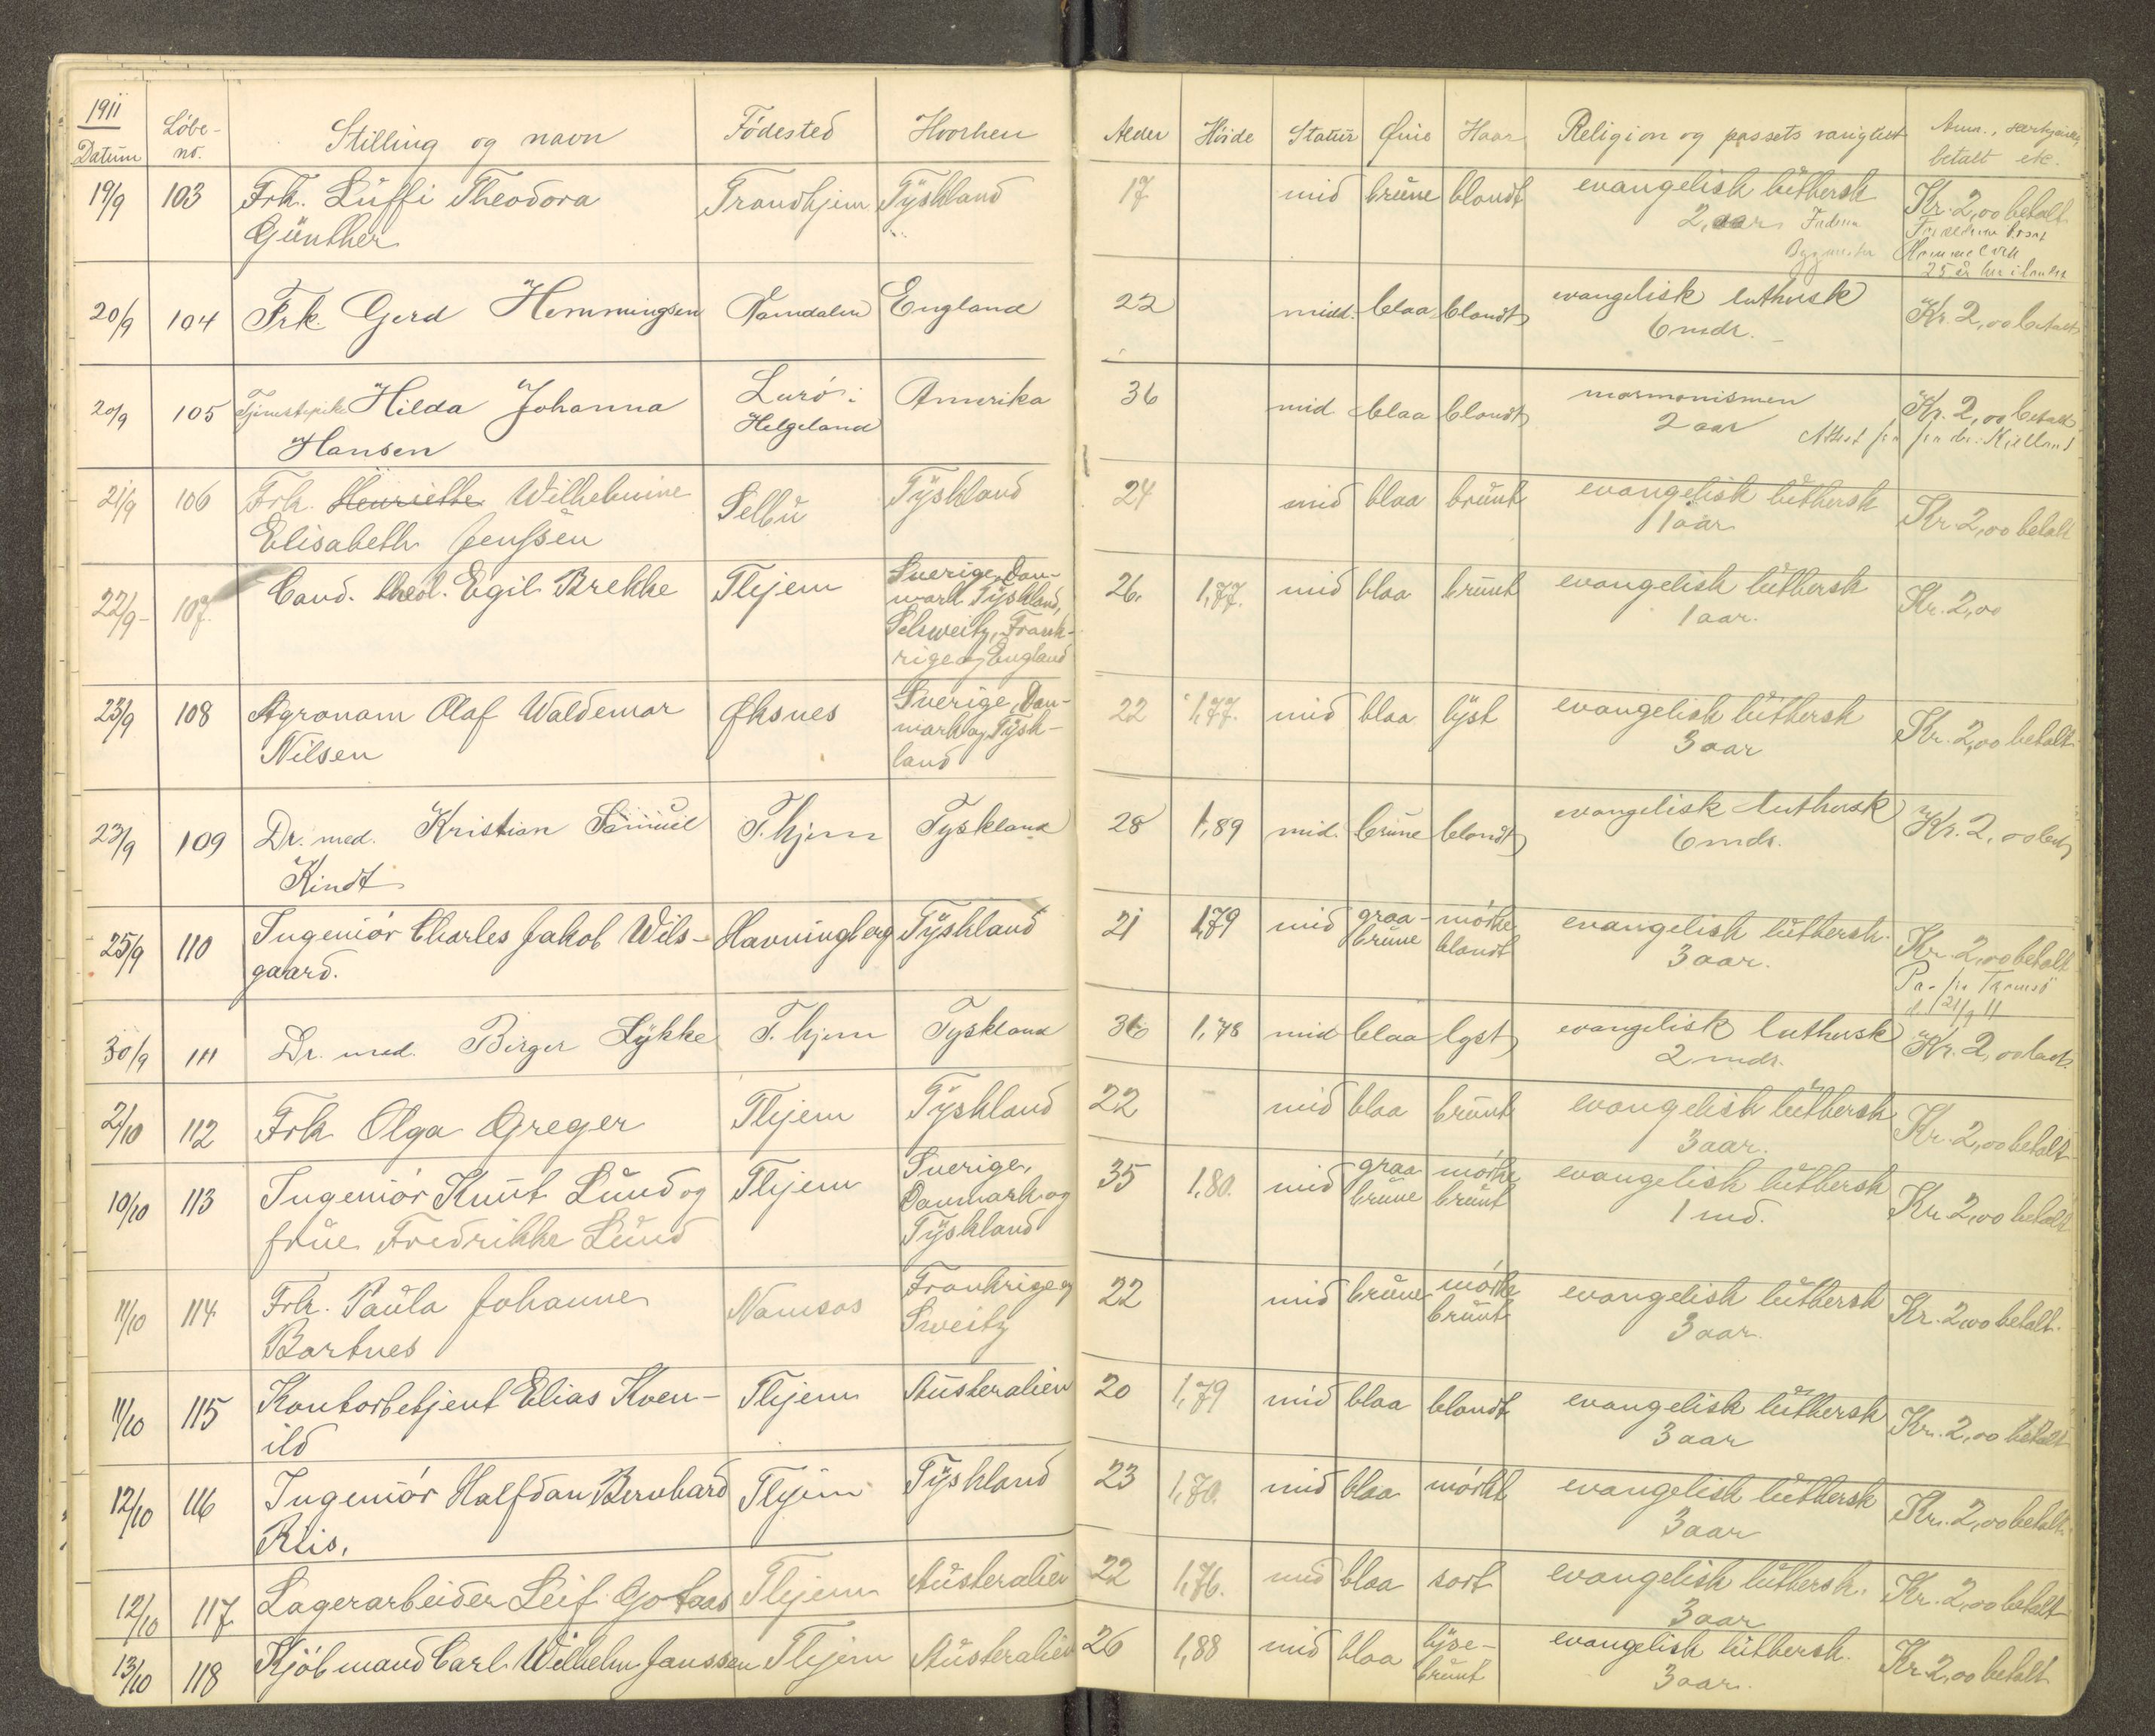 1911
Datum Löbe- no. Stilling og navn Födested Hvorhen Alder Höide Statur Øine Haar Religion og passets varighet betalt etc.
19/9 103 Frk. Luffi Theodora Trondhjem Tyskland 17 mid brune blondt evangelisk luthersk Kr. 2,00 betalt
Günther 2 aar
20/9 104 Frk. Gerd Hemmingsen Namdalen England 22 midd. blaa blondt evangelisk luthersk Kr. 2,00 betalt
6 mdr.
20/9 105 Tjenestepike Hilda Johanna Lurö i Amerika 36 mid blaa blondt mormonismen Kr. 2,00 betalt
Hansen Helgeland 2 aar Attest fra
21/9 106 Frk. Henriette Wilhelmine Selbu Tyskland 24 mid blaa brunt evangelisk luthersk Kr. 2,00 betalt
Elisabeth Jenssen 1 aar
22/9 107. Cand. theol. Egil Brekke Thjem Sverige, Dan- 26. 1,77. mid blaa brunt evangelisk luthersk Kr. 2,00
mark Tyskland, 1 aar.
Schweitz, Frank-
rige og England
23/9 108 Agronom Olaf Waldemar Øksnes Sverige, Dan- 22 1,77. mid blaa lyst evangelisk luthersk Kr. 2,00 betalt
Nilsen mark og Tysk- 3 aar
land
23/9 109 Dr. med. Kristian Samuel T.hjem Tyskland 28 1,89 mid. brune blondt evangelisk luthersk Kr. 2,00 bet
Kindt 6 mds.
25/9 110 Ingeniör Charles Jakob Wils- Havningberg Tyskland 21 1,79 mid graa- mörke evangelisk luthersk. Kr. 2,00 betalt
gaard. brune blondt 3 aar.
Tromsö
21/9 11
30/9 111 Dr. med. Birger Lykke T.hjem Tyskland 36 1,78 mid blaa lyst evangelisk luthersk Kr. 2,00
2 mds.
2/10 112 Frk Olga Greger Thjem Tyskland 22 mid blaa brunt evangelisk luthersk Kr. 2,00 betalt
3 aar.
10/10 113 Ingeniör Knut Lund og Thjem Sverige, 35 1,80. mid graa mörke evangelisk luthersk Kr. 2,00 betalt
frue Fredrikke Lund Danmark og brune brunt 1 md.
Tyskland
11/10 114 Frk. Paula Johanne Namsos Frankrige og 22 mid brune mörke evangelisk luthersk Kr. 2,00 betalt.
Bartnes Sweitz brunt 3 aar.
11/10 115 Kontorbetjent Elias Kven- Thjem Australien 20 1,79 mid blaa blondt evangelisk luthersk Kr. 2,00 betalt
ild 3 aar
12/10 116 Ingeniör Halfdan Bernhard Thjem Tyskland 23 1,70. mid blaa mörkt evangelisk luthersk Kr. 2,00 betalt
Riis. 3 aar
12/10 117 Lagerarbeider Leif Gotaas Thjem Australien 22 1,76. mid blaa sort evangelisk luthersk. Kr. 2,00 betalt
3 aar
13/10 118 Kjöbmand Carl Wilhelm Janssen Thjem Australien 26 1,88 mid blaa lyse- evangelisk luthersk. Kr 2,00 betalt
brunt 3 aar.